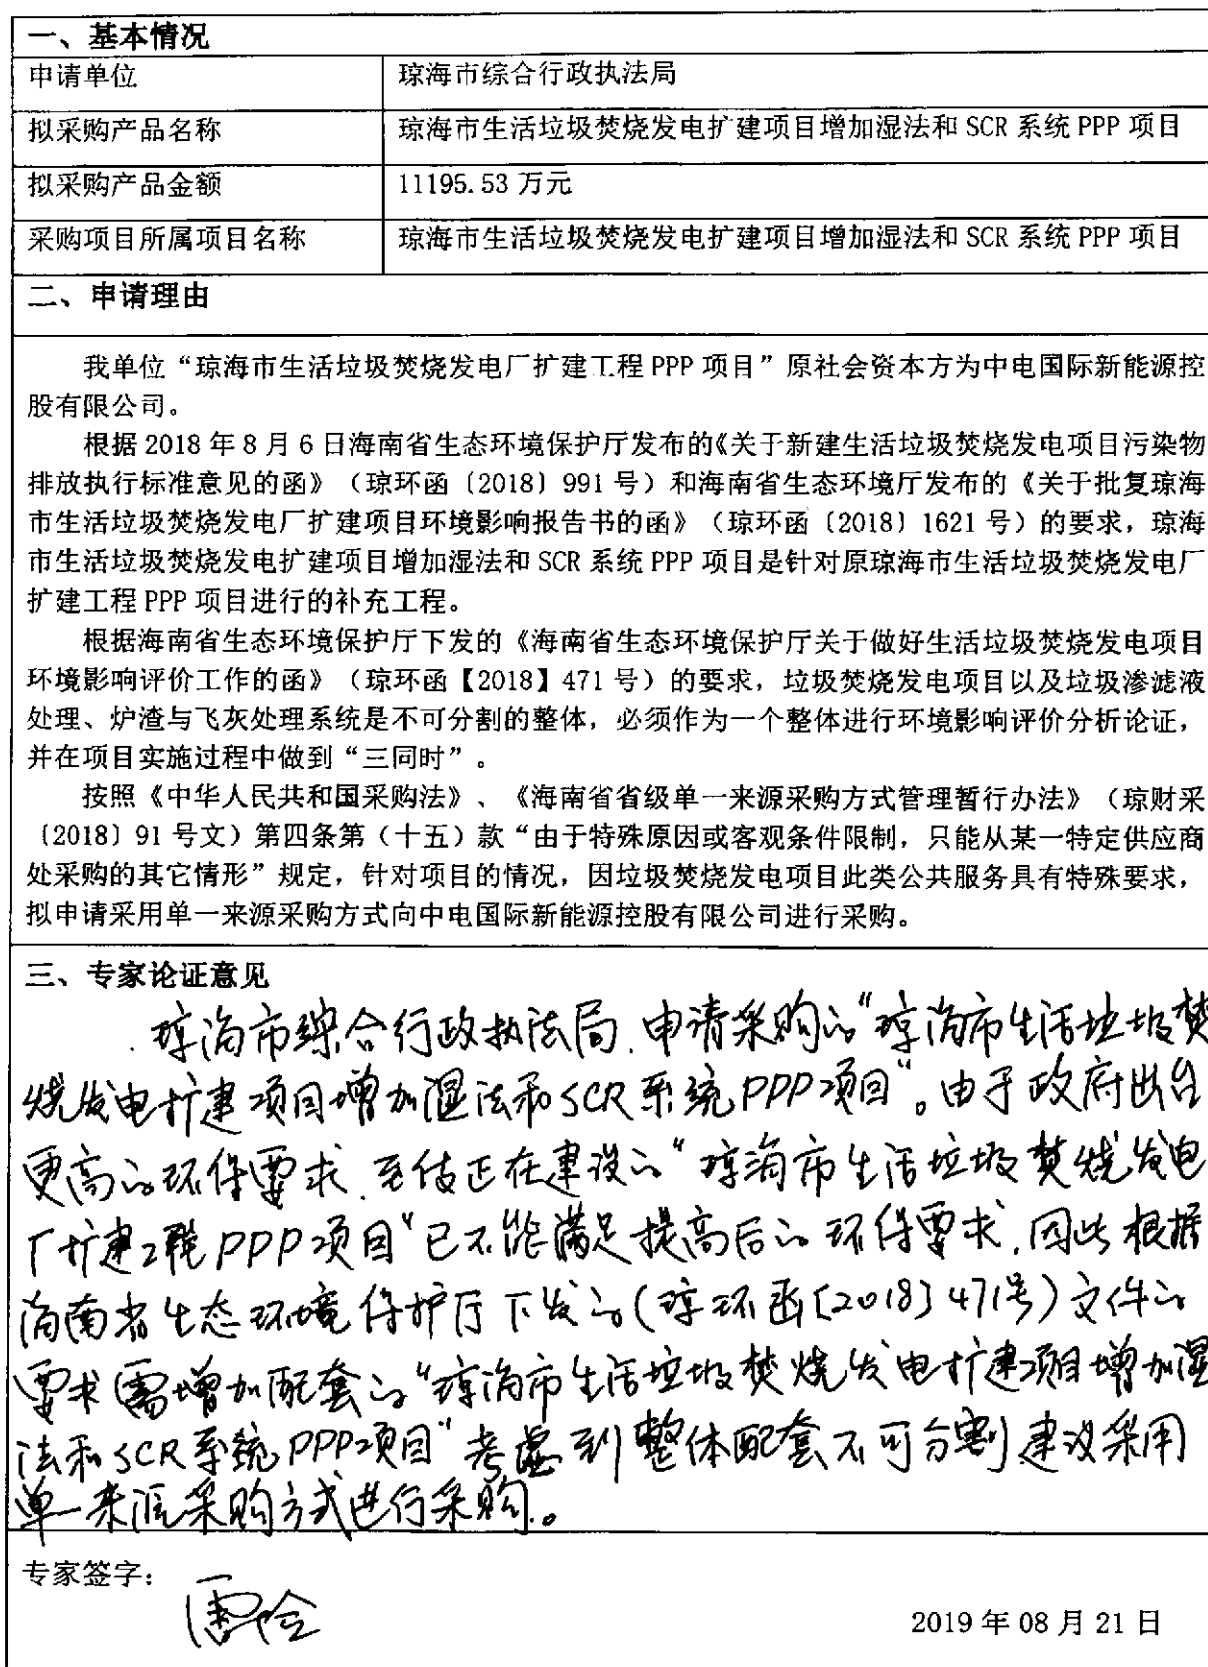 一、基本情况
申请单位 琼海市综合行政执法局
拟采购产品名称 琼海市生活垃圾焚烧发电扩建项目增加湿法和 SCR 系统 PPP 项目
拟采购产品金额 11195.53 万元
采购项目所属项目名称 琼海市生活垃圾焚烧发电扩建项目增加湿法和 SCR 系统 PPP 项目
二、申请理由
我单位“琼海市生活垃圾焚烧发电厂扩建工程 PPP 项目”原社会资本方为中电国际新能源控
股有限公司。
根据 2018 年 8 月 6 日海南省生态环境保护厅发布的《关于新建生活垃圾焚烧发电项目污染物
排放执行标准意见的函》（琼环函〔2018〕991 号）和海南省生态环境厅发布的《关于批复琼海
市生活垃圾焚烧发电厂扩建项目环境影响报告书的函》（琼环函〔2018〕1621 号）的要求，琼海
市生活垃圾焚烧发电扩建项目增加湿法和 SCR 系统 PPP 项目是针对原琼海市生活垃圾焚烧发电厂
扩建工程 PPP 项目进行的补充工程。
根据海南省生态环境保护厅下发的《海南省生态环境保护厅关于做好生活垃圾焚烧发电项目
环境影响评价工作的函》（琼环函【2018】471 号）的要求，垃圾焚烧发电项目以及垃圾渗滤液
处理、炉渣与飞灰处理系统是不可分割的整体，必须作为一个整体进行环境影响评价分析论证，
并在项目实施过程中做到“三同时”。
按照《中华人民共和国采购法》、《海南省省级单一来源采购方式管理暂行办法》（琼财采
〔2018〕91 号文）第四条第（十五）款“由于特殊原因或客观条件限制，只能从某一特定供应商
处采购的其它情形”规定，针对项目的情况，因垃圾焚烧发电项目此类公共服务具有特殊要求，
拟申请采用单一来源采购方式向中电国际新能源控股有限公司进行采购。
三、专家论证意见
琼海市综合行政执法局申请采购的“琼海市生活垃圾焚
烧发电扩建项目增加湿法和SCR系统PPP项目”。由于政府出台
更高的环保要求，致使正在建设的“琼海市生活垃圾焚烧发电
厂扩建工程PPP项目”已不能满足提高后的环保要求，因此根据
海南省生态环境保护厅下发的（琼环函〔2018〕471号）文件的
要求需增加配套的“琼海市生活垃圾焚烧发电扩建项目增加湿
法和SCR系统PPP项目”考虑到整体配套不可分割建议采用
单一来源采购方式进行采购。
专家签字：
2019 年 08 月 21 日